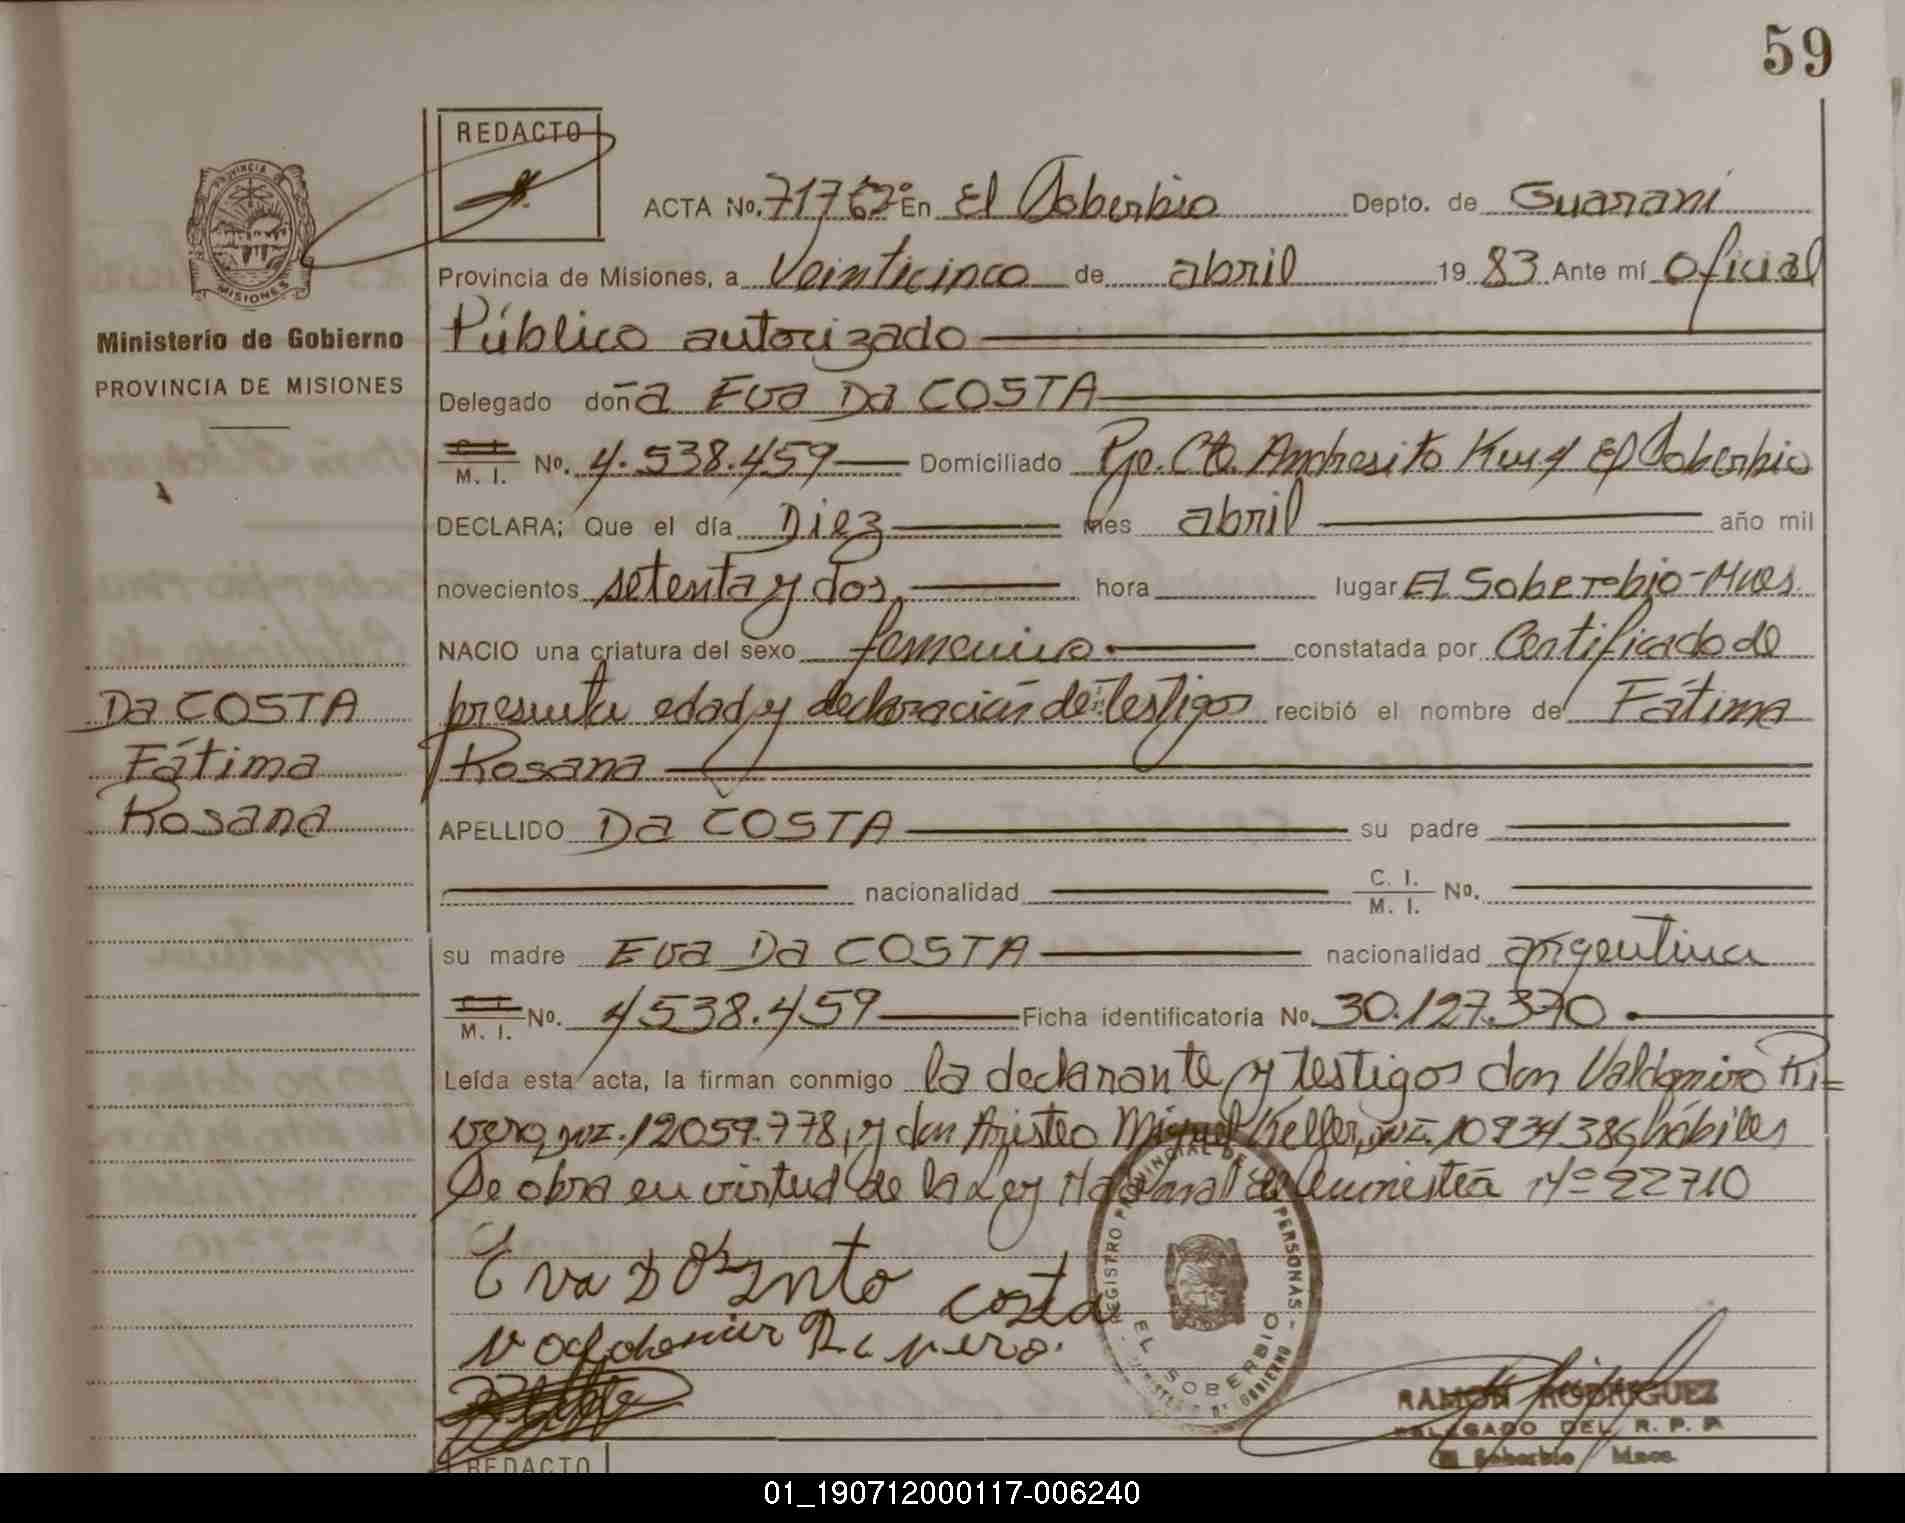 59
REDACTO
PROVINCIA DE
MISIONES
Ministerio de Gobierno
PROVINCIA DE MISIONES
ACTA No. En El Soberbio Depto. de Guaraní
Provincia de Misiones, a Veinticinco de abril 19 83 Ante mí Oficial
Público autorizado
Delegado doña Eva Da COSTA
C. I. M. I. No. 4.538.459 Domiciliado Pje. Cto. Andresito El Soberbio
DECLARA; Que el día Diez mes abril año mil
novecientos setenta y dos, hora lugar El Soberbio-Mnes.
NACIO una criatura del sexo femenino constatada por Certificado de
presunta edad y declaración de testigos recibió el nombre de Fátima
Rosana
Da COSTA
Fátima
Rosana
APELLIDO Da COSTA su padre
nacionalidad C. I. M. I. No.
su madre Eva Da COSTA nacionalidad argentina
C. I. M. I. No. 4538.459 Ficha identificatoria No. 30.127.370
Leída esta acta, la firman conmigo la declarante y testigos don Valdomiro Ri=
vero, M.I. 12059.778, y don Aristeo Miguel Keller, M.I. 10934386, hábiles
Se obra en virtud de la Ley Nacional de Nº 22710
Eva
Costa
Rivero.
REGISTRO PROVINCIAL DE PERSONAS
EL SOBERBIO
MINISTERIO DE GOBIERNO
RAMON RODRIGUEZ
DELEGADO DEL R. P. P.
El Soberbio Mnes.
REDACTO
01_190712000117-006240